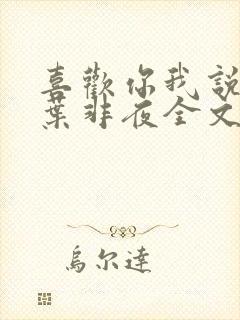 喜歡你我說
葉非夜全文
烏尔達